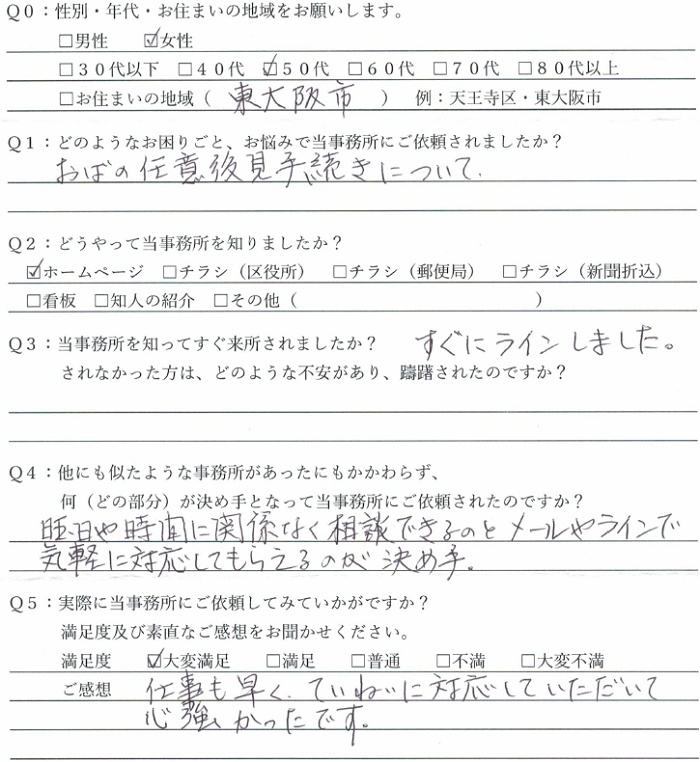 Q0：性別・年代・お住まいの地域をお願いします。
□男性　☑女性
□30代以下　□40代　☑50代　□60代　□70代　□80代以上
□お住まいの地域（　東大阪市　）　例：天王寺区・東大阪市
Q1：どのようなお困りごと、お悩みで当事務所にご依頼されましたか？
おばの任意後見手続きについて.
Q2：どうやって当事務所を知りましたか？
☑ホームページ　□チラシ（区役所）　□チラシ（郵便局）　□チラシ（新聞折込）
□看板　□知人の紹介　□その他（　　　　　　　　　　　　）
Q3：当事務所を知ってすぐ来所されましたか？　すぐにラインしました。
されなかった方は、どのような不安があり、躊躇されたのですか？
Q4：他にも似たような事務所があったにもかかわらず、
何（どの部分）が決め手となって当事務所にご依頼されたのですか？
曜日や時間に関係なく相談できるのとメールやラインで
気軽に対応してもらえるのが決め手.
Q5：実際に当事務所にご依頼してみていかがですか？
満足度及び素直なご感想をお聞かせください。
満足度　☑大変満足　□満足　□普通　□不満　□大変不満
ご感想　仕事も早く、ていねいに対応していただいて
心強かったです。